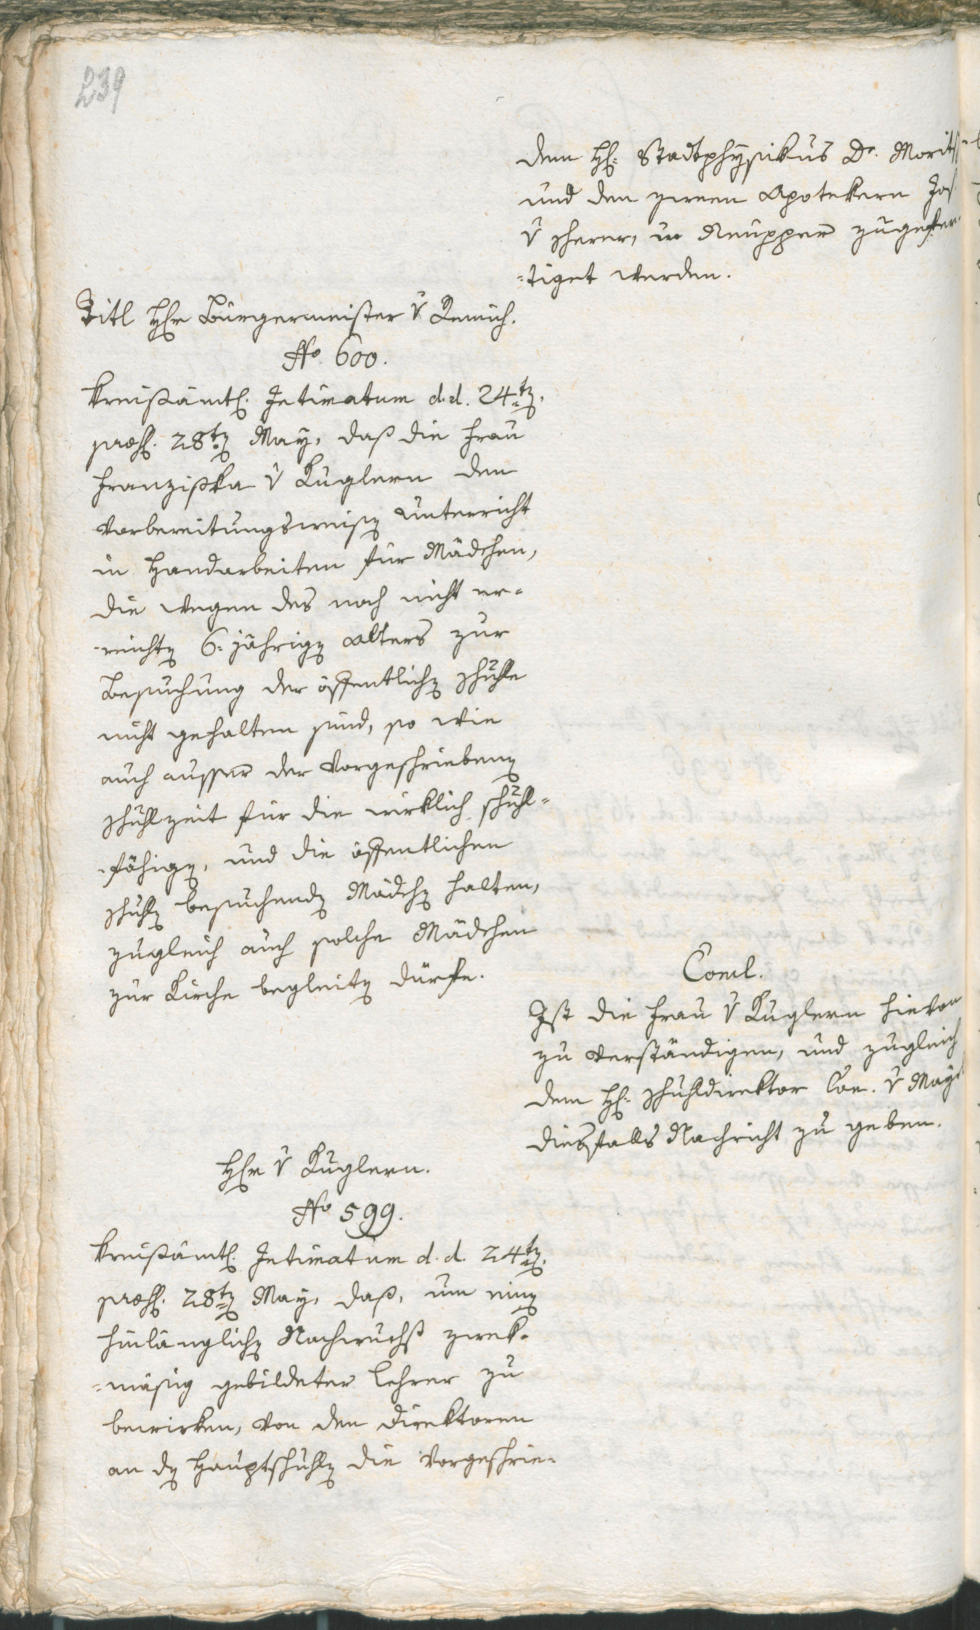 239
dem H: Stadtphysikus Dr. Moritz
und den zween Apotekern Jos
v Scherer, u Neupper zugefer-
-tiget werden.
Titl Hr Bürgermeister v Remich.
No 600.
Kreißämtl. Intimatum d. d. 24ten,
praes. 28ten May, daß die Frau
Franziska v Kuglern den
Vorbereitungsweisen Unterricht
in Handarbeiten für Mädchen,
die wegen des noch nicht er-
-reichten 6. jährigen Alters zur
Besuchung der öffentlichen Schuhle
nicht gehalten sind, so wie
auch ausser der Vorgeschriebenen
Schuhlzeit für die wirklich schuhl-
-fähigen, und die öffentlichen
Schuhlen besuchenden Mädchen halten,
zugleich auch solche Mädchen
zur Kirche begleiten dürfe.
Concl.
Ist die Frau v Kuglern hievon
zu verständigen, und zugleich
dem H: Schuhldirektor Can. v Mayrl
diesfalls Nachricht zu geben.
Hr v Kuglern.
No 599.
Kreißämtl. Intimatum d. d. 24ten,
praes. 28ten May, daß, um einen
hinlänglichen Nachwuchß zwek-
-mäsig gebildeter Lehrer zu
bewirken, von den Direktoren
an den Hauptschuhlen die Vorgeschrie-